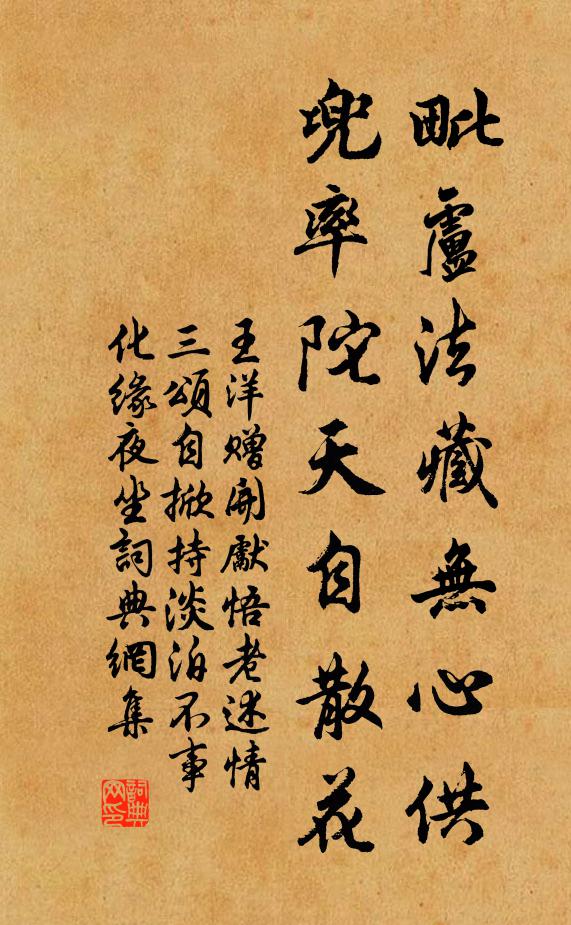 毗盧法藏無心供
兜率陀天自散花
王洋贈開獻悟老述情
三頌自掀持淡泊不事
化緣夜坐詞典網集
詞典网印